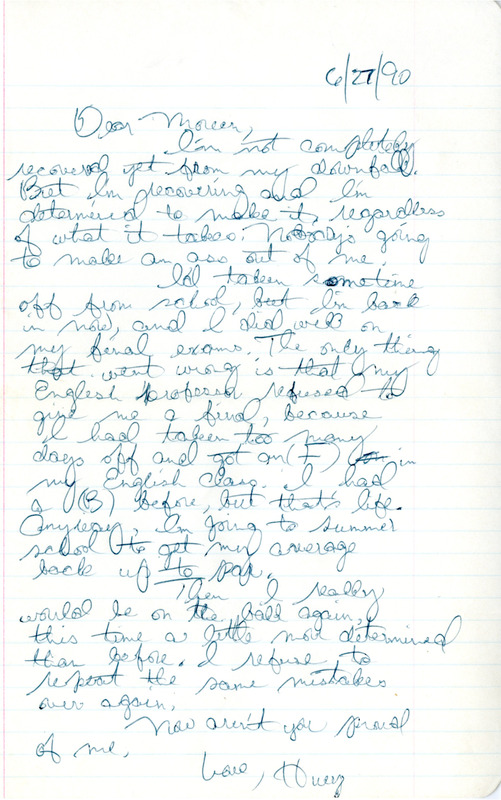 6/27/90
Dear Moreen,
I'm not completely
recovered yet from my downfall.
But I'm recovering and I'm
determined to make it, regardless
of what it takes. Nobody's going
to make an ass out of me.
I'd taken sometime
off from school, but I'm back
in now, and I did well on
my final exams. The only thing
that went wrong is that my
English professor refused to
give me a final, because
I had taken too many
days off and got an (F) in
my English class. I had
a (B) before, but that's life.
Anyway, I'm going to summer
school to get my average
back up to par.
Then I really
would be on the ball again,
this time a little more determined
than before. I refuse to
repeat the same mistakes
over again.
Now aren't you proud
of me.
Love, Huey